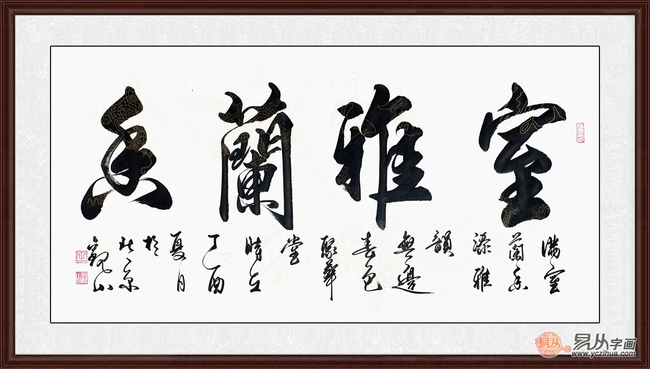 室雅蘭香
满室
蘭香
添雅
韻
無邊
春色
聚華
堂
時在
丁酉
夏月
於
北京
觀山
易从
易从字画
www.yczihua.com